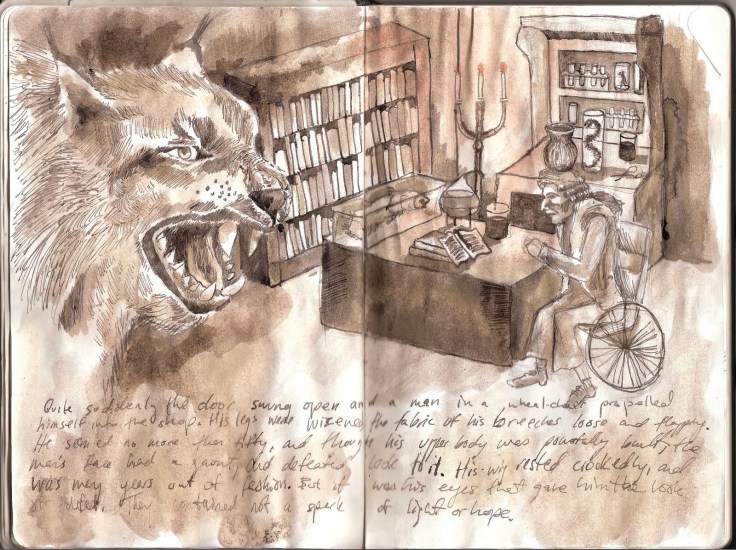 Quite suddenly the door swung open and a man in a wheel-chair propelled
himself into the shop. His legs were wizened the fabric of his breeches loose and flapping.
He seemed no more than fifty, and though his upper body was powerfully built, the
man's face had a gaunt, and defeated look to it. His wig rested crookedly, and
was many years out of fashion. But it was his eyes that gave him the look
of They contained not a spark of light or hope.